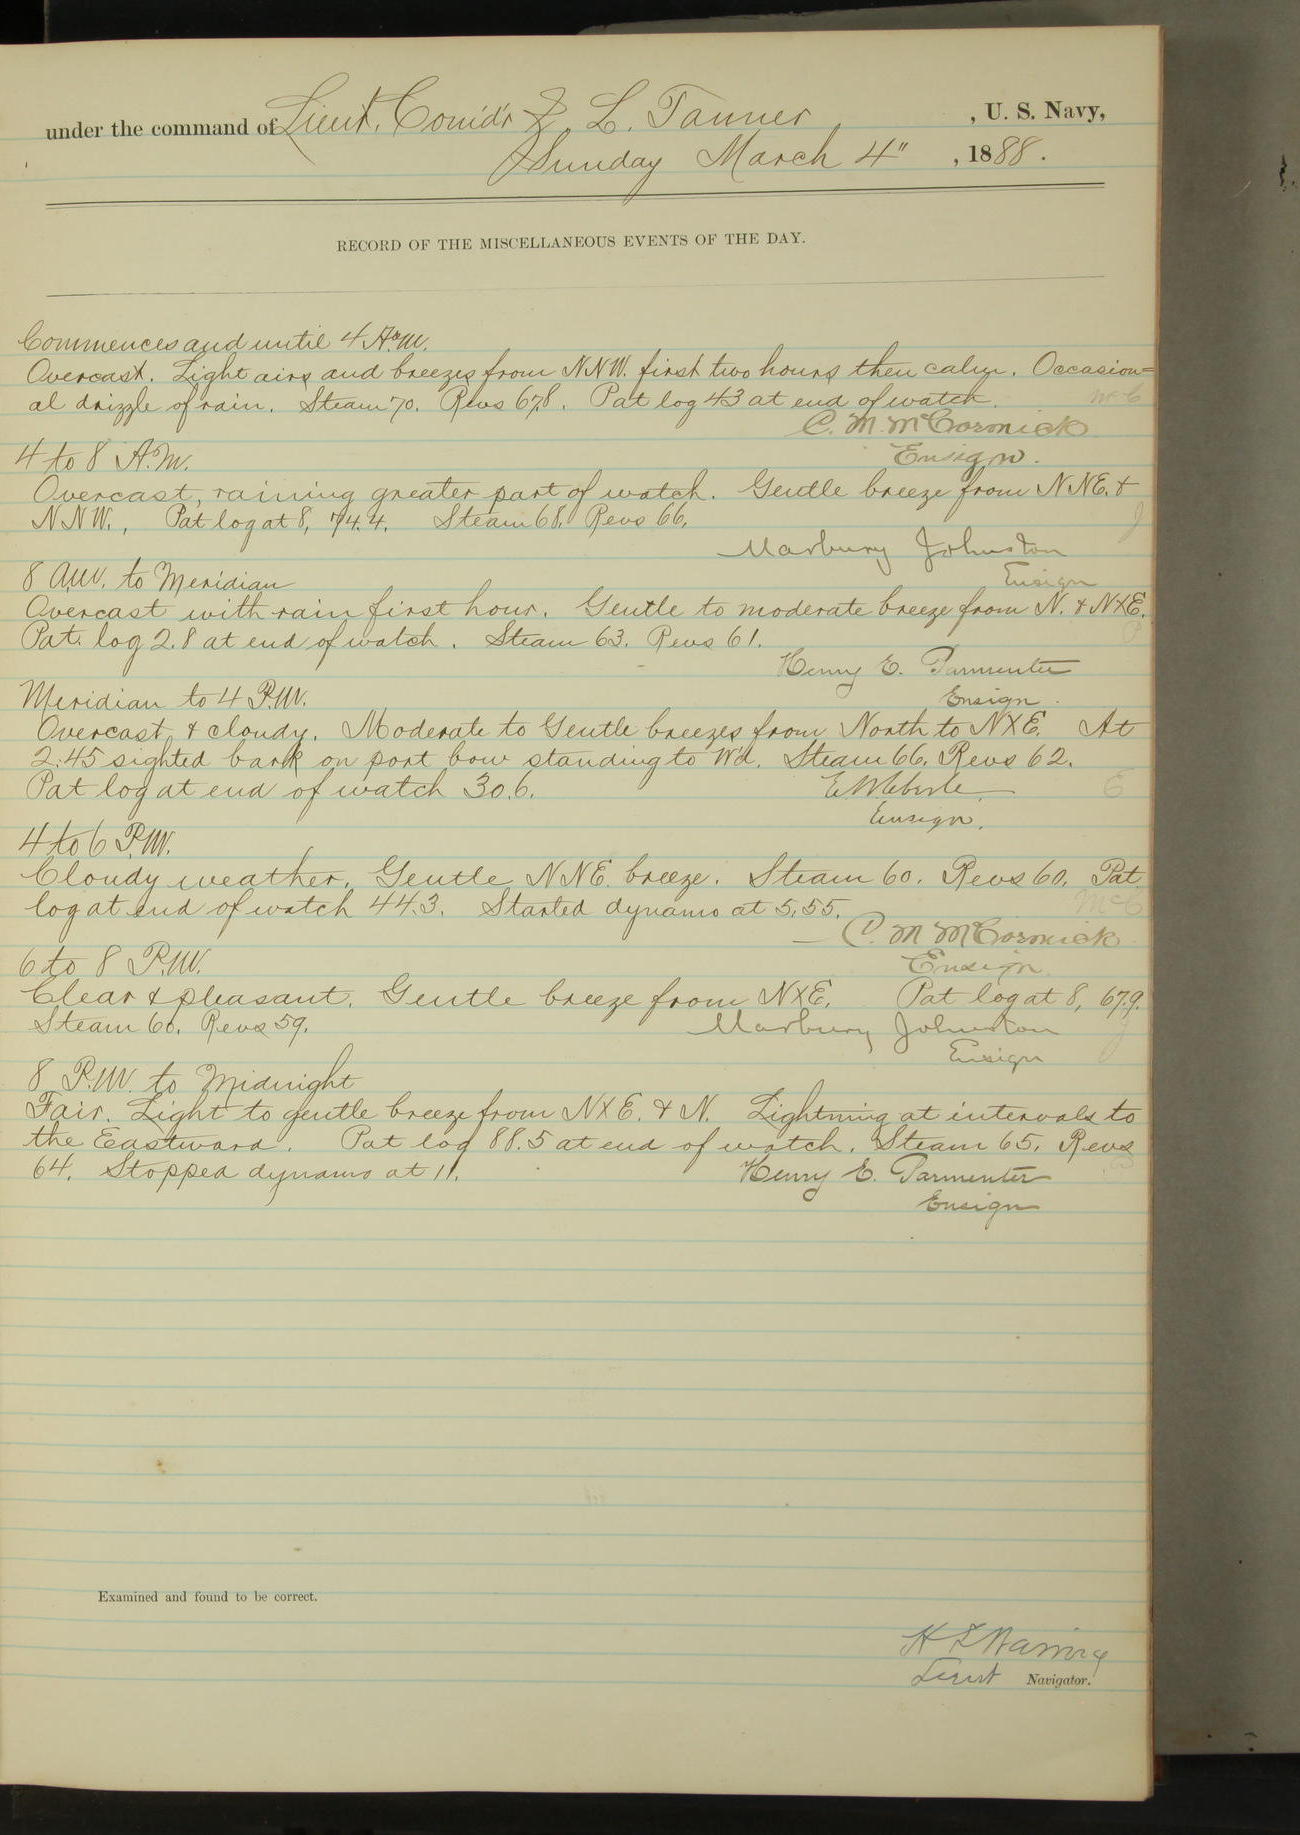 under the command of Lieut. Comd'r Z. L. Tanner, U. S. Navy,
Sunday March 4", 1888.
RECORD OF THE MISCELLANEOUS EVENTS OF THE DAY.
Commences and until 4 A.M.
Overcast. Light airs and breezes from NNW. first two hours then calm. Occasion=
al drizzle of rain. Steam 70. Revs 67.8. Pat log 43 at end of watch.
McC
C. M. McCormick
Ensign.
4 to 8 A.M.
Overcast, raining greater part of watch. Gentle breeze from NNE. &
NNW., Pat log at 8, 74.4. Steam 68. Revs 66.
J
Marbury Johnston
Ensign
8 A.M. to Meridian
Overcast with rain first hour. Gentle to moderate breeze from N. & NXE.
Pat. log 2.8 at end of watch. Steam 63. Revs 61.
P
Henry E. Parmenter
Ensign.
Meridian to 4 P.M.
Overcast & cloudy. Moderate to Gentle breezes from North to NXE. At
2:45 sighted bark on port bow standing to W'd. Steam 66. Revs 62.
Pat log at end of watch 30.6.
E W Eberle
E
Ensign.
4 to 6 P.M.
Cloudy weather. Gentle NNE. breeze. Steam 60. Revs 60. Pat
log at end of watch 44.3. Started dynamo at 5.55.
McC
C. M McCormick
Ensign.
6 to 8 P.M.
Clear & pleasant. Gentle breeze from NXE. Pat log at 8, 67.9.
Steam 60. Revs 59.
Marbury Johnston
J
Ensign
8 P.M. to Midnight
Fair. Light to gentle breeze from NXE. & N. Lightning at intervals to
the Eastward. Pat log 88.5 at end of watch. Steam 65. Revs
64. Stopped dynamo at 11.
Henry E. Parmenter
Ensign
Examined and found to be correct.
H S Waring
Lieut Navigator.